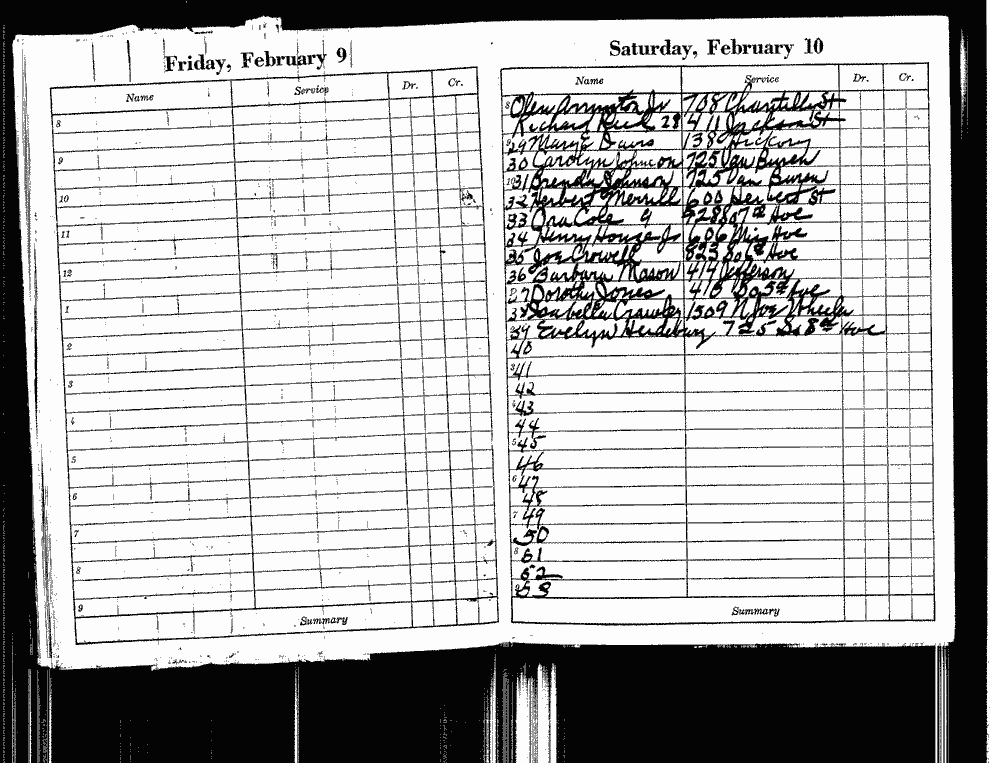 Friday, February 9
Name Service Dr. Cr.
8
9
10
11
12
1
2
3
4
5
6
7
8
9
Summary
Saturday, February 10
Name Service Dr. Cr.
8 Olen Arrington Jr 708 Chantilly St
Richard 28 411 Jackson St
9 29 Mary E Davis 138 Hickory
30 Carolyn Johnson 725 Van Buren
10 31 Brenda Johnson 725 Van Buren
32 Herbert Merrill 600 St
33 Ora Cole 9 928 So 7th Ave
34 Henry House Jr 606 Ave
35 Joe Crowell 823 So 6th Ave
36 Barbara Mason 414 Jefferson
37 Dorothy Jones 415 So 5th Ave
38 Isabella Crawley 1509 N Joe Wheeler
39 Evelyn 725 So 8th Ave
40
3 41
42
4 43
44
5 45
46
6 47
48
7 49
50
8 51
52
9 53
Summary